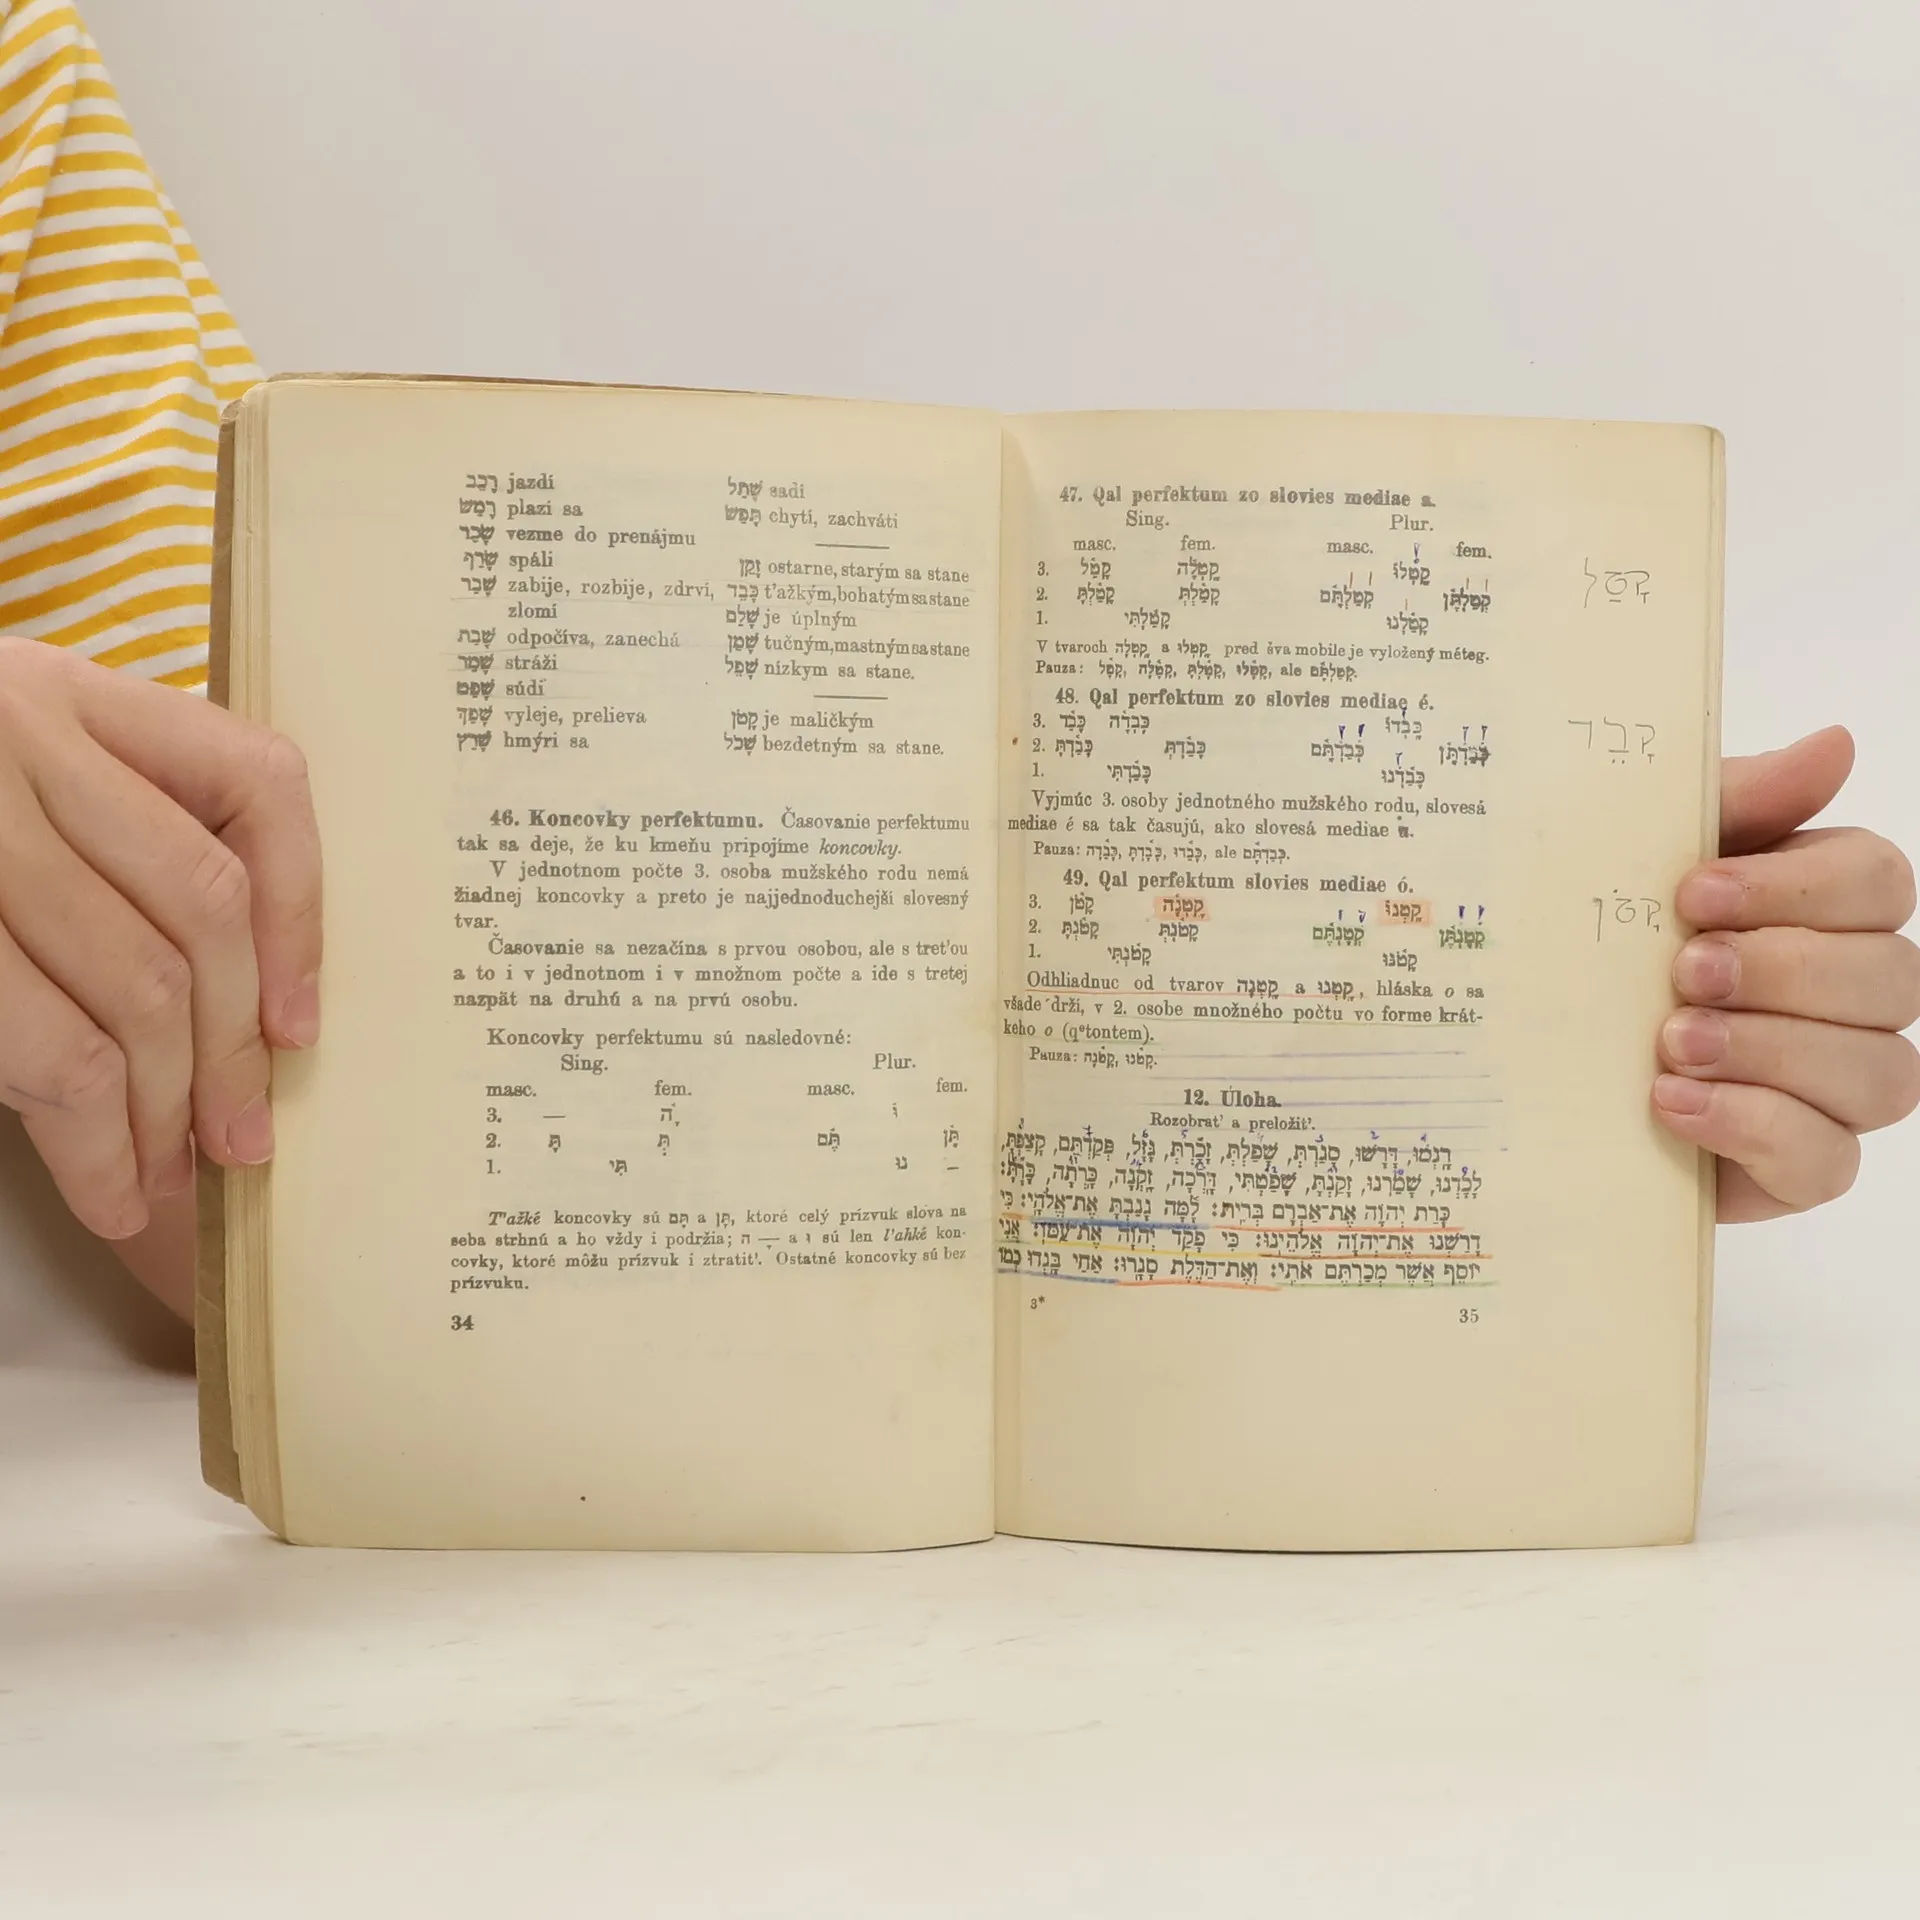 רָכַב jazdí
רָמַשׂ plazí sa
שָׂכַר vezme do prenájmu
שָׂרַף spáli
שָׁבַר zabije, rozbije, zdrví,
zlomí
שָׁבַת odpočíva, zanechá
שָׁמַר stráži
שָׁפַט súdí
שָׁפַךְ vyleje, prelieva
שָׁרַץ hmýri sa
שָׁתַל sadí
תָּפַשׂ chytí, zachváti
זָקֵן ostarne, starým sa stane
כָּבֵד ťažkým, bohatým sa stane
שָׁלֵם je úplným
שָׁמֵן tučným, mastným sa stane
שָׁפֵל nízkym sa stane.
קָטֹן je maličkým
שָׁכֹל bezdetným sa stane.
46. Koncovky perfektumu. Časovanie perfektumu
tak sa deje, že ku kmeňu pripojíme koncovky.
V jednotnom počte 3. osoba mužského rodu nemá
žiadnej koncovky a preto je najjednoduchejší slovesný
tvar.
Časovanie sa nezačína s prvou osobou, ale s treťou
a to i v jednotnom i v množnom počte a ide s tretej
nazpät na druhú a na prvú osobu.
Koncovky perfektumu sú nasledovné:
Sing. Plur.
masc. fem. masc. fem.
3. — ָה וּ
2. תָּ תְּ תֶּם תֶּן
1. תִּי נוּ –
Ťažké koncovky sú תֶּם a תֶּן, ktoré celý prízvuk slova na
seba strhnú a ho vždy i podržia; ה — a וּ sú len ľahké kon-
covky, ktoré môžu prízvuk i ztratiť. Ostatné koncovky sú bez
prízvuku.
34
47. Qal perfektum zo slovies mediae a.
Sing. Plur.
masc. fem. masc. fem.
3. קָטַל קָטְלָה קָטְלוּ
2. קָטַלְתָּ קָטַלְתְּ קְטַלְתֶּם קְטַלְתֶּן
1. קָטַלְתִּי קָטַלְנוּ
V tvaroch קָטְלָה a קָטְלוּ pred šva mobile je vyložený méteg.
Pauza: קָטָל, קָטָלָה, קָטָלְתָּ, קָטָלוּ, ale קְטַלְתֶּם.
48. Qal perfektum zo slovies mediae é.
3. כָּבֵד כָּבְדָה כָּבְדוּ
2. כָּבַדְתָּ כָּבַדְתְּ כְּבַדְתֶּם כְּבַדְתֶּן
1. כָּבַדְתִּי כָּבַדְנוּ
Vyjmúc 3. osoby jednotného mužského rodu, slovesá
mediae é sa tak časujú, ako slovesá mediae a.
Pauza: כָּבֵדָה, כָּבָדְתָּ, כָּבֵדוּ, ale כְּבַדְתֶּם.
49. Qal perfektum slovies mediae ó.
3. קָטֹן קָטְנָה קָטְנוּ
2. קָטֹנְתָּ קָטֹנְתְּ קְטָנְתֶּם קְטָנְתֶּן
1. קָטֹנְתִּי קָטֹנּוּ
Odhliadnuc od tvarov קָטְנָה a קָטְנוּ, hláska o sa
všade drží, v 2. osobe množného počtu vo forme krát-
keho o (qᵉtontem).
Pauza: קָטֹנָה, קָטֹנוּ.
12. Úloha.
Rozobrať a preložiť.
רָגְמוּ, דָּרְשׁוּ, סָגַרְתְּ, שָׁפַלְתְּ, זָכַרְתְּ, גָּזַל, פְּקַדְתֶּם, קָצַפְתָּ,
לָכַדְנוּ, שָׁמַרְנוּ, זָקַנְתָּ, שָׁפַטְתִּי, דָּרְכָה, זָקְנָה, כָּרְתָה, כָּרַתָּ:
כָּרַת יְהוָֹה אֶת־אַבְרָם בְּרִית: לָמָּה גָנַבְתָּ אֶת־אֱלֹהָי: כִּי
דָרַשְׁנוּ אֶת־יְהוָֹה אֱלֹהֵינוּ: כִּי פָקַד יְהוָֹה אֶת־עַמּוֹ: אֲנִי
יוֹסֵף אֲשֶׁר מְכַרְתֶּם אֹתִי: וְאֶת־הַדֶּלֶת סָגָרוּ: אַחַי בָּגְדוּ כְמוֹ
3* 35
קָטַל
קָבֵד
קָטֹן